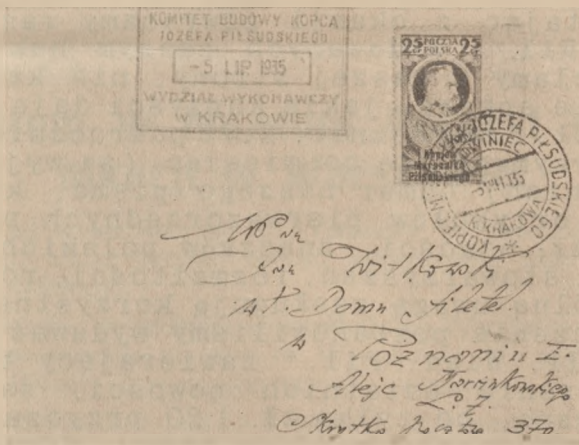 KOMITET BUDOWY KOPCA
JÓZEFA PIŁSUDSKIEGO
-5 LIP 1935
WYDZIAŁ WYKONAWCZY
W KRAKOWIE
25 POCZTA POLSKA 25
Kopiec
Marszałka
Piłsudskiego
KOPIEC JÓZEFA PIŁSUDSKIEGO
K. KRAKOWA
WPan
Jan Witkowski
wł. Domu filatel.
w Poznaniu I.
Aleje Marcinkowskiego
L. 7.
Skrytka poczt. 370